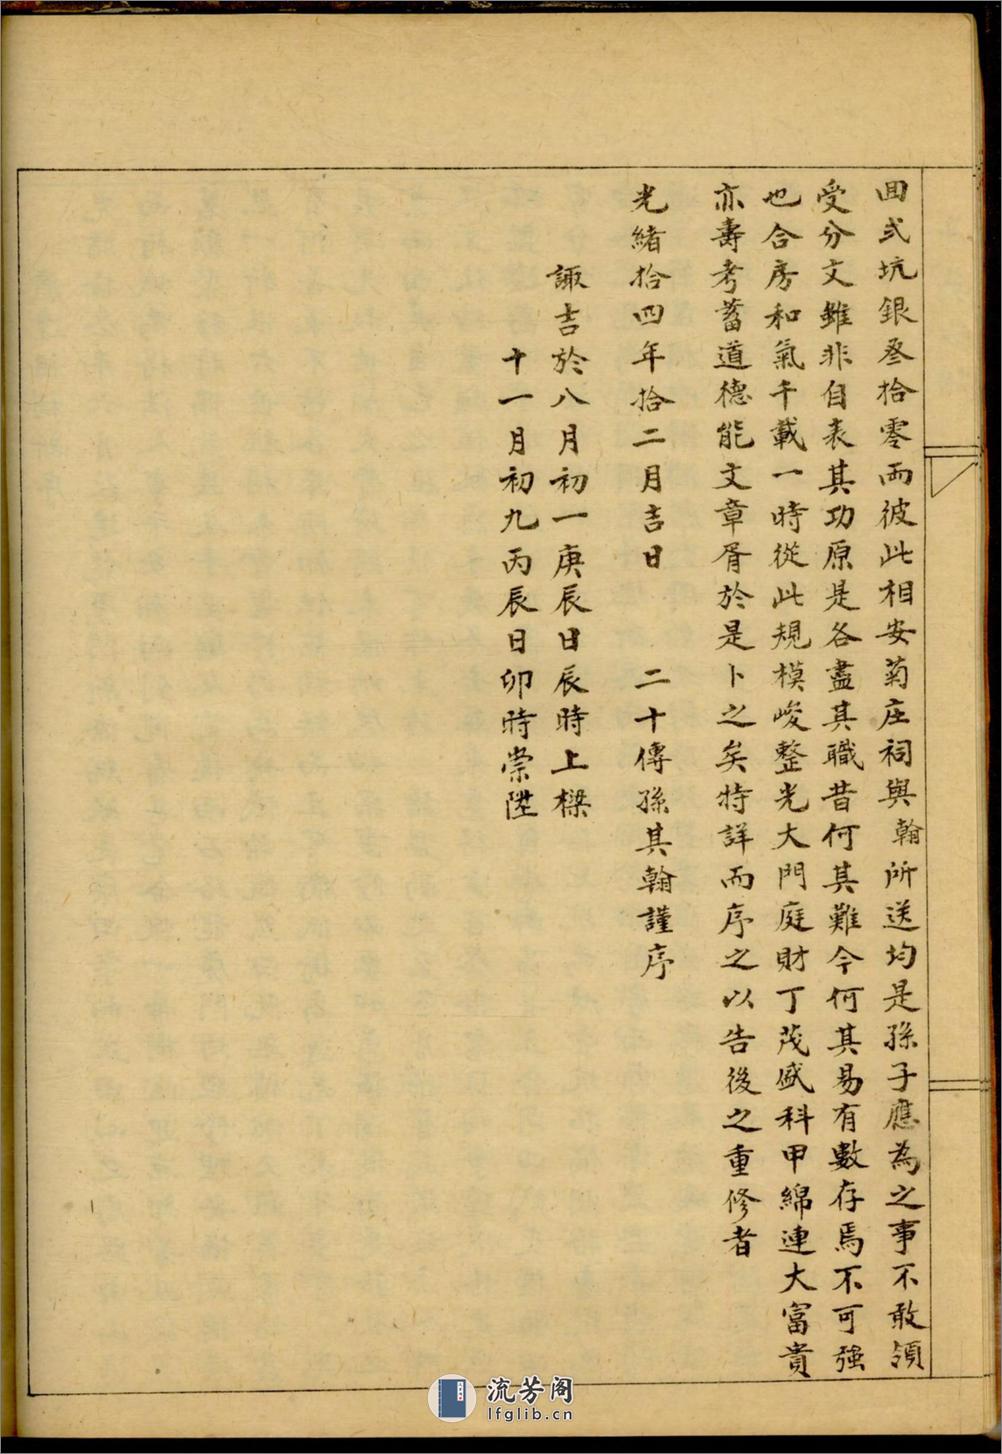 田弍坑銀叄拾零両彼此相安菊庄祠與翰所送均是孫子應為之事不敢領
受分文雖非自表其功原是各盡其職昔何其難今何其易有數存焉不可強
也合房和氣千載一時從此規模峻整光大門庭財丁茂盛科甲綿連大富貴
亦壽考蓄道德能文章胥於是卜之矣特詳而序之以告後之重修者
光緒拾四年拾二月吉日　　二十傳孫其翰謹序
諏吉於八月初一庚辰日辰時上樑
十一月初九丙辰日卯時崇陞
流芳阁
lfglib.cn